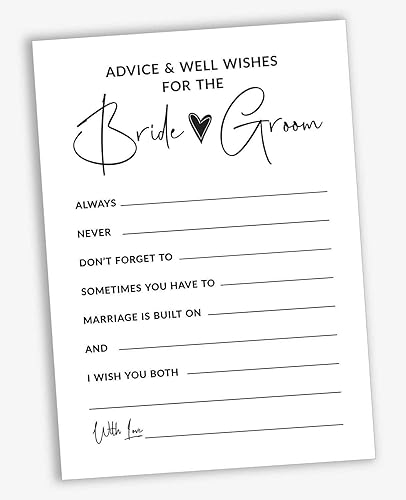 ADVICE & WELL WISHES
FOR THE
Bride ♥ Groom
ALWAYS
NEVER
DON'T FORGET TO
SOMETIMES YOU HAVE TO
MARRIAGE IS BUILT ON
AND
I WISH YOU BOTH
With Love